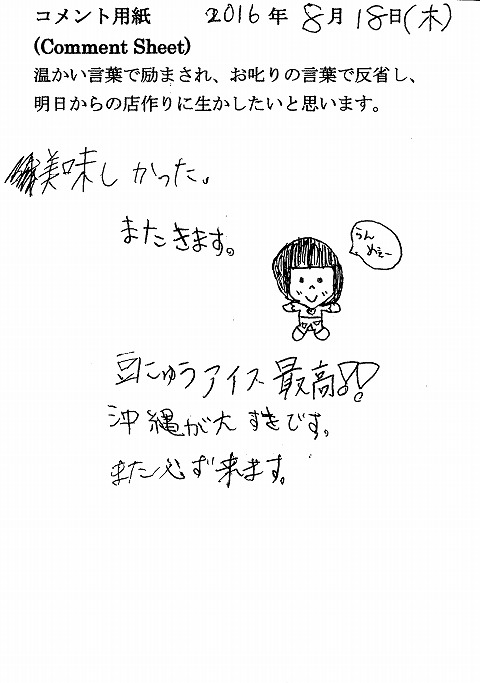 コメント用紙 2016年 8月 18日(木)
(Comment Sheet)
温かい言葉で励まされ、お叱りの言葉で反省し、
明日からの店作りに生かしたいと思います。
美味しかった。
またきます。
うん
めぇー
豆にゅうアイス最高!!
沖縄が大すきです。
また必ず来ます。